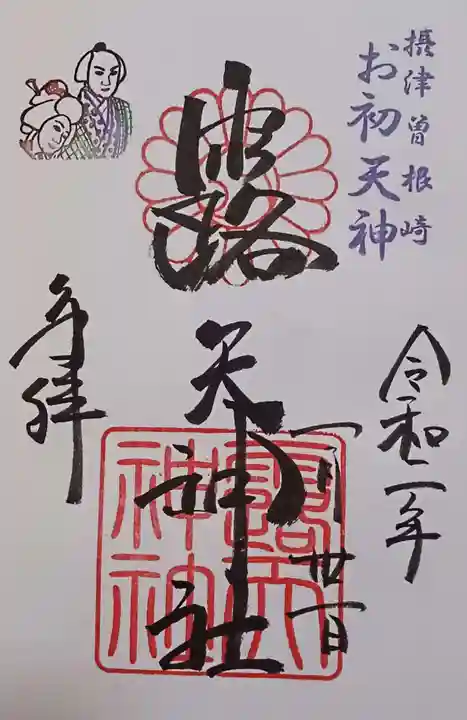 摂津曽根崎
お初天神
令和二年
一月卅一日
露
天神社
奉拝
露天神社